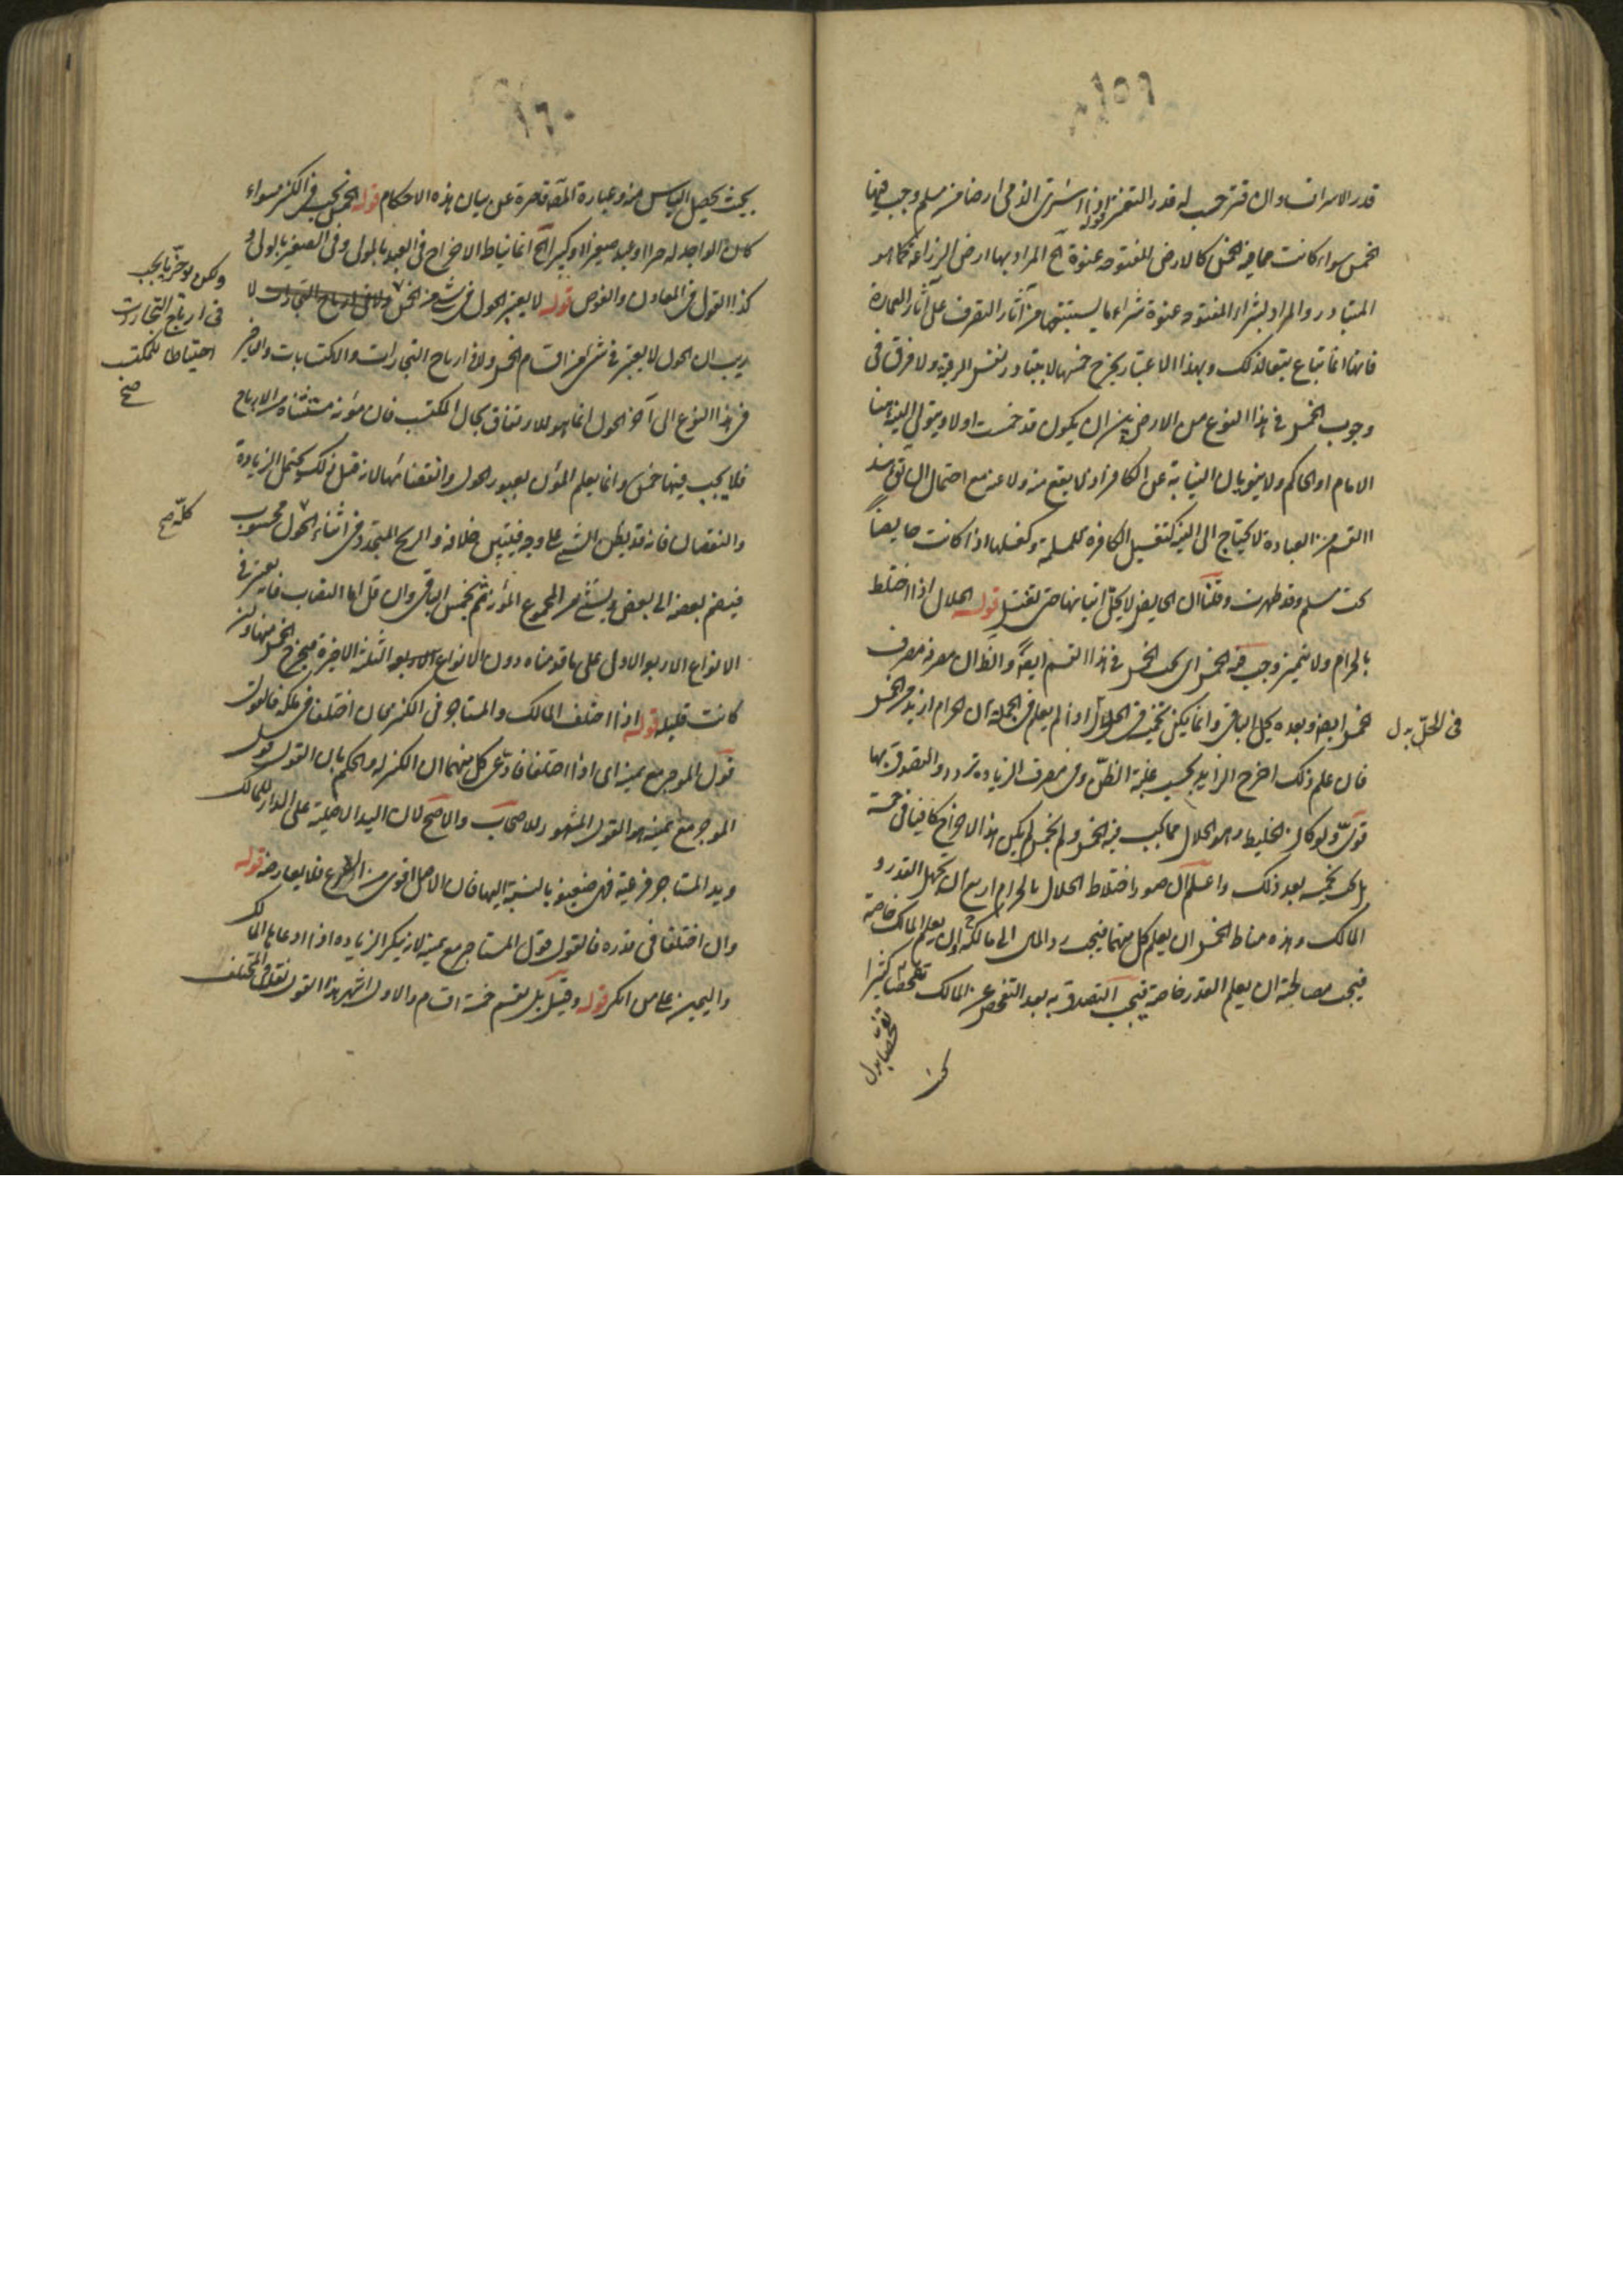 ١٥٩
قدر الاسراف وان قتر حسب له قدر التقتير قوله اذا اشترى الذمي ارضا من مسلم وجب فيها
الخمس سواء كانت مما فيه الخمس كالارض المفتوحه عنوة الخ المراد بها ارض الزراعة كما هو
المتبادر والمراد بشراء المفتوحه عنوة شراء ما يستتبعها من آثار التصرف على آثار العمارة
فانها انما تباع تبعا لذلك وبهذا الاعتبار يخرج خمسها لا باعتبار نفس الرقبة ولا فرق في
وجوب الخمس في هذا النوع من الارض بين ان يكون قد خمست اولا ويتولى النية هنا
الامام او الحاكم ولا ينويان النيابة عن الكافر اذ لا يقع منه ولا عنه مع احتمال ان
القسم من العبادة لا يحتاج الى النية كتغسيل الكافرة للمسلمة وكغسلها اذا كانت حايضاً
تحت مسلم وقد طهرت وقلنا ان الحايض لا يحل اتيانها حتى تغتسل قوله الحلال اذا اختلط
بالحرام ولا يتميز وجب فيه الخمس اي يجب الخمس في هذا القسم ايضاً والظ ان مصرفه مصرف
الخمس ايضا وبعده يحل الباقي وانما يكفي تخميس الحلال اذا لم يعلم في الجملة ان الحرام ازيد من الخمس
في المحلّ بدل
فان علم ذلك اخرج الزايد بحسب غلبة الظنّ وفي مصرف الزياده تردد والتصدق بها
قويّ ولو كان الخليط وهو الحلال مما يجب فيه الخمس ولم يخمس لم يكن هذا الاخراج كافيا في
بل يجب بعد ذلك واعلم ان صور اختلاط الحلال بالحرام اربع ان يجهل القدر و
المالك وهذه مناط الخمس ان يعلم كل منهما فيجب رد المال الى مالكه ان يعلم المالك خاصة
فيجب مصالحته ان يعلم القدر خاصة فيجب التصدق به بعد التفحص عن المالك تفحصا كثيرا
١٦٠
بحيث يحصل الياس منه وعبارة المص قاصرة عن بيان هذه الاحكام قوله الخمس يجب في الكنز سواء
كان الواجد له حرا او عبد صغيرا او كبيرا الخ انما يناط الاخراج في العبد بالمولى وفي الصغير بالولي و
كذا القول في المعادن والغوص قوله لا يعتبر الحول في شئ من الخمس ولا في ارباح التجارات لا
ولكن يؤخّر ما يجب
في ارباح التجارات
احتياطا للمكتسب
صح
ريب ان الحول لا يعتبر في شئ من اقسام الخمس ولا في ارباح التجارات والاكتسابات والتاخير
في هذا النوع الى آخر الحول انما هو للارتفاق بحال المكتسب فان مؤنة مستثناة من الارباح
فلا يجب فيها خمس وانما يعلم المؤن بعبور الحول وانقضائها لانه قبل ذلك يحتمل الزيادة
والنقصان فانه قد يظن الشئ على وجه فيتبين خلافه والربح المتجدد في اثناء الحول محسوب
كلّه صح
فيضم بعضه الى بعض ويستثنى من المجموع المؤنة ثم يخمس الباقي وان قل اما النصاب فانه يعتبر في
الانواع الاربع الاول على ما قدمناه دون الانواع الثلثة الاخيرة فيخرج الخمس منها وان
كانت قليله قوله اذا اختلف المالك والمستاجر في الكنز فان اختلفا في ملكه فالقول
قول الموجر مع يمينه اي اذا اختلفا فادّعى كل منهما ان الكنز له والحكم بان القول قول
الموجر مع يمينه هو القول المشهور للاصحاب والاصح لان اليد الاصلية على الدار للمالك
ويد المستاجر فرعية فهي ضعيفة بالنسبة اليها فان الاصل اقوى من الفرع فلا يعارضه قوله
وان اختلفا في قدره فالقول قول المستاجر مع يمينه لانه ينكر الزياده اذا ادعاها المالك
واليمين على من انكر قوله وقيل بل يقسم خمسة اقسام والاول اشهر هذا القول نقله في المختلف